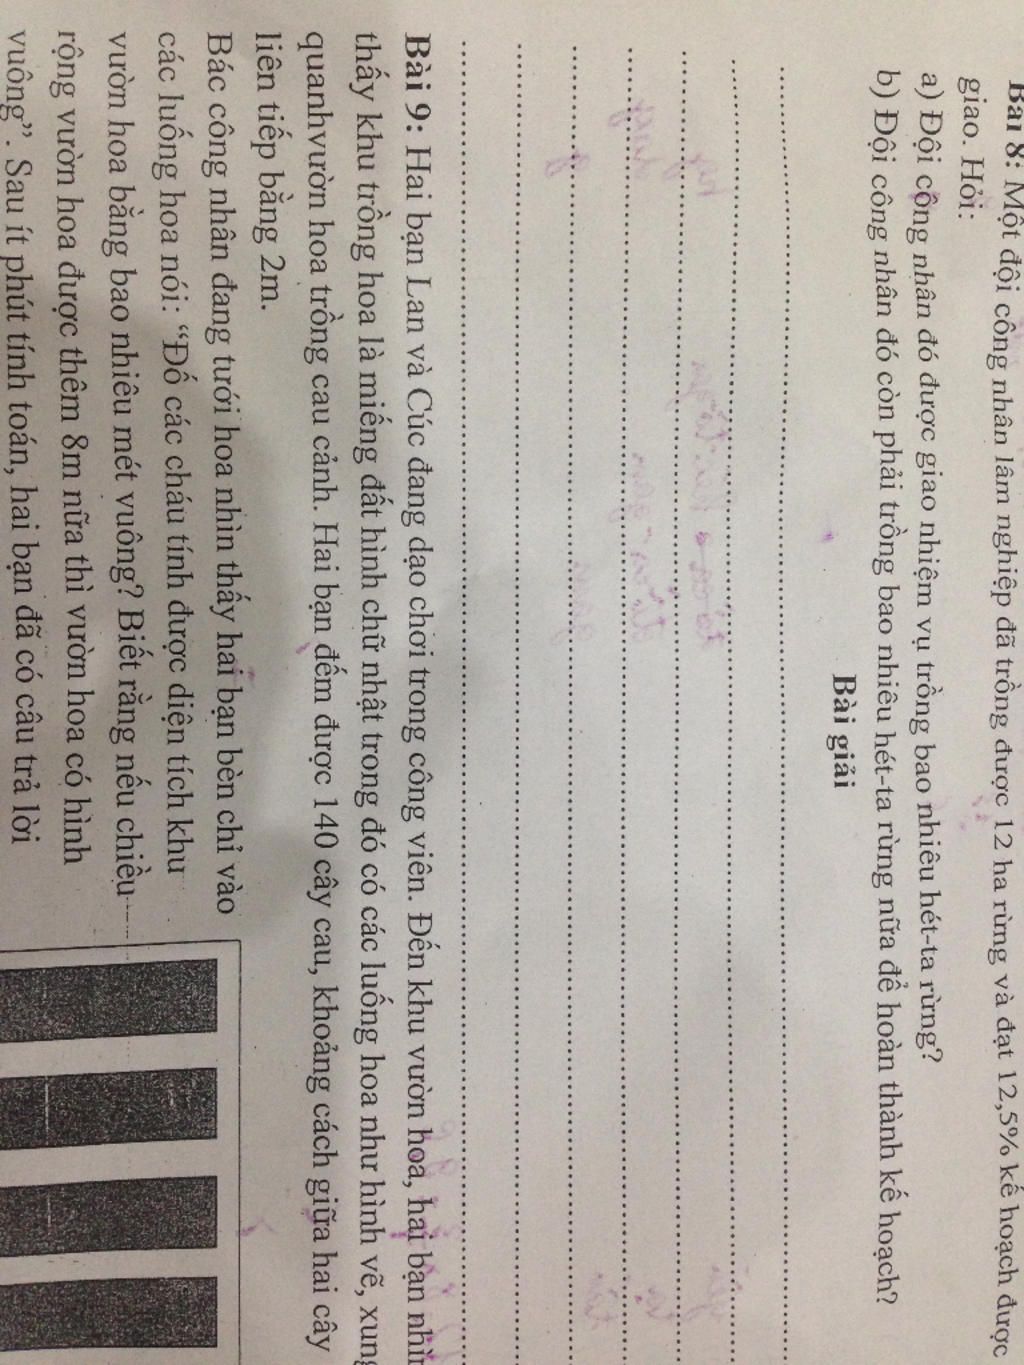 Bài 8: Một đội công nhân lâm nghiệp đã trồng được 12 ha rừng và đạt 12,5% kế hoạch được
giao. Hỏi:
a) Đội công nhân đó được giao nhiệm vụ trồng bao nhiêu hét-ta rừng?
b) Đội công nhân đó còn phải trồng bao nhiêu hét-ta rừng nữa để hoàn thành kế hoạch?
Bài giải
Bài 9: Hai bạn Lan và Cúc đang dạo chơi trong công viên. Đến khu vườn hoa, hai bạn nhìn
thấy khu trồng hoa là miếng đất hình chữ nhật trong đó có các luống hoa như hình vẽ, xung
quanhvườn hoa trồng cau cảnh. Hai bạn đếm được 140 cây cau, khoảng cách giữa hai cây
liên tiếp bằng 2m.
Bác công nhân đang tưới hoa nhìn thấy hai bạn bèn chỉ vào
các luống hoa nói: “Đố các cháu tính được diện tích khu
vườn hoa bằng bao nhiêu mét vuông? Biết rằng nếu chiều
rộng vườn hoa được thêm 8m nữa thì vườn hoa có hình
vuông”. Sau ít phút tính toán, hai bạn đã có câu trả lời